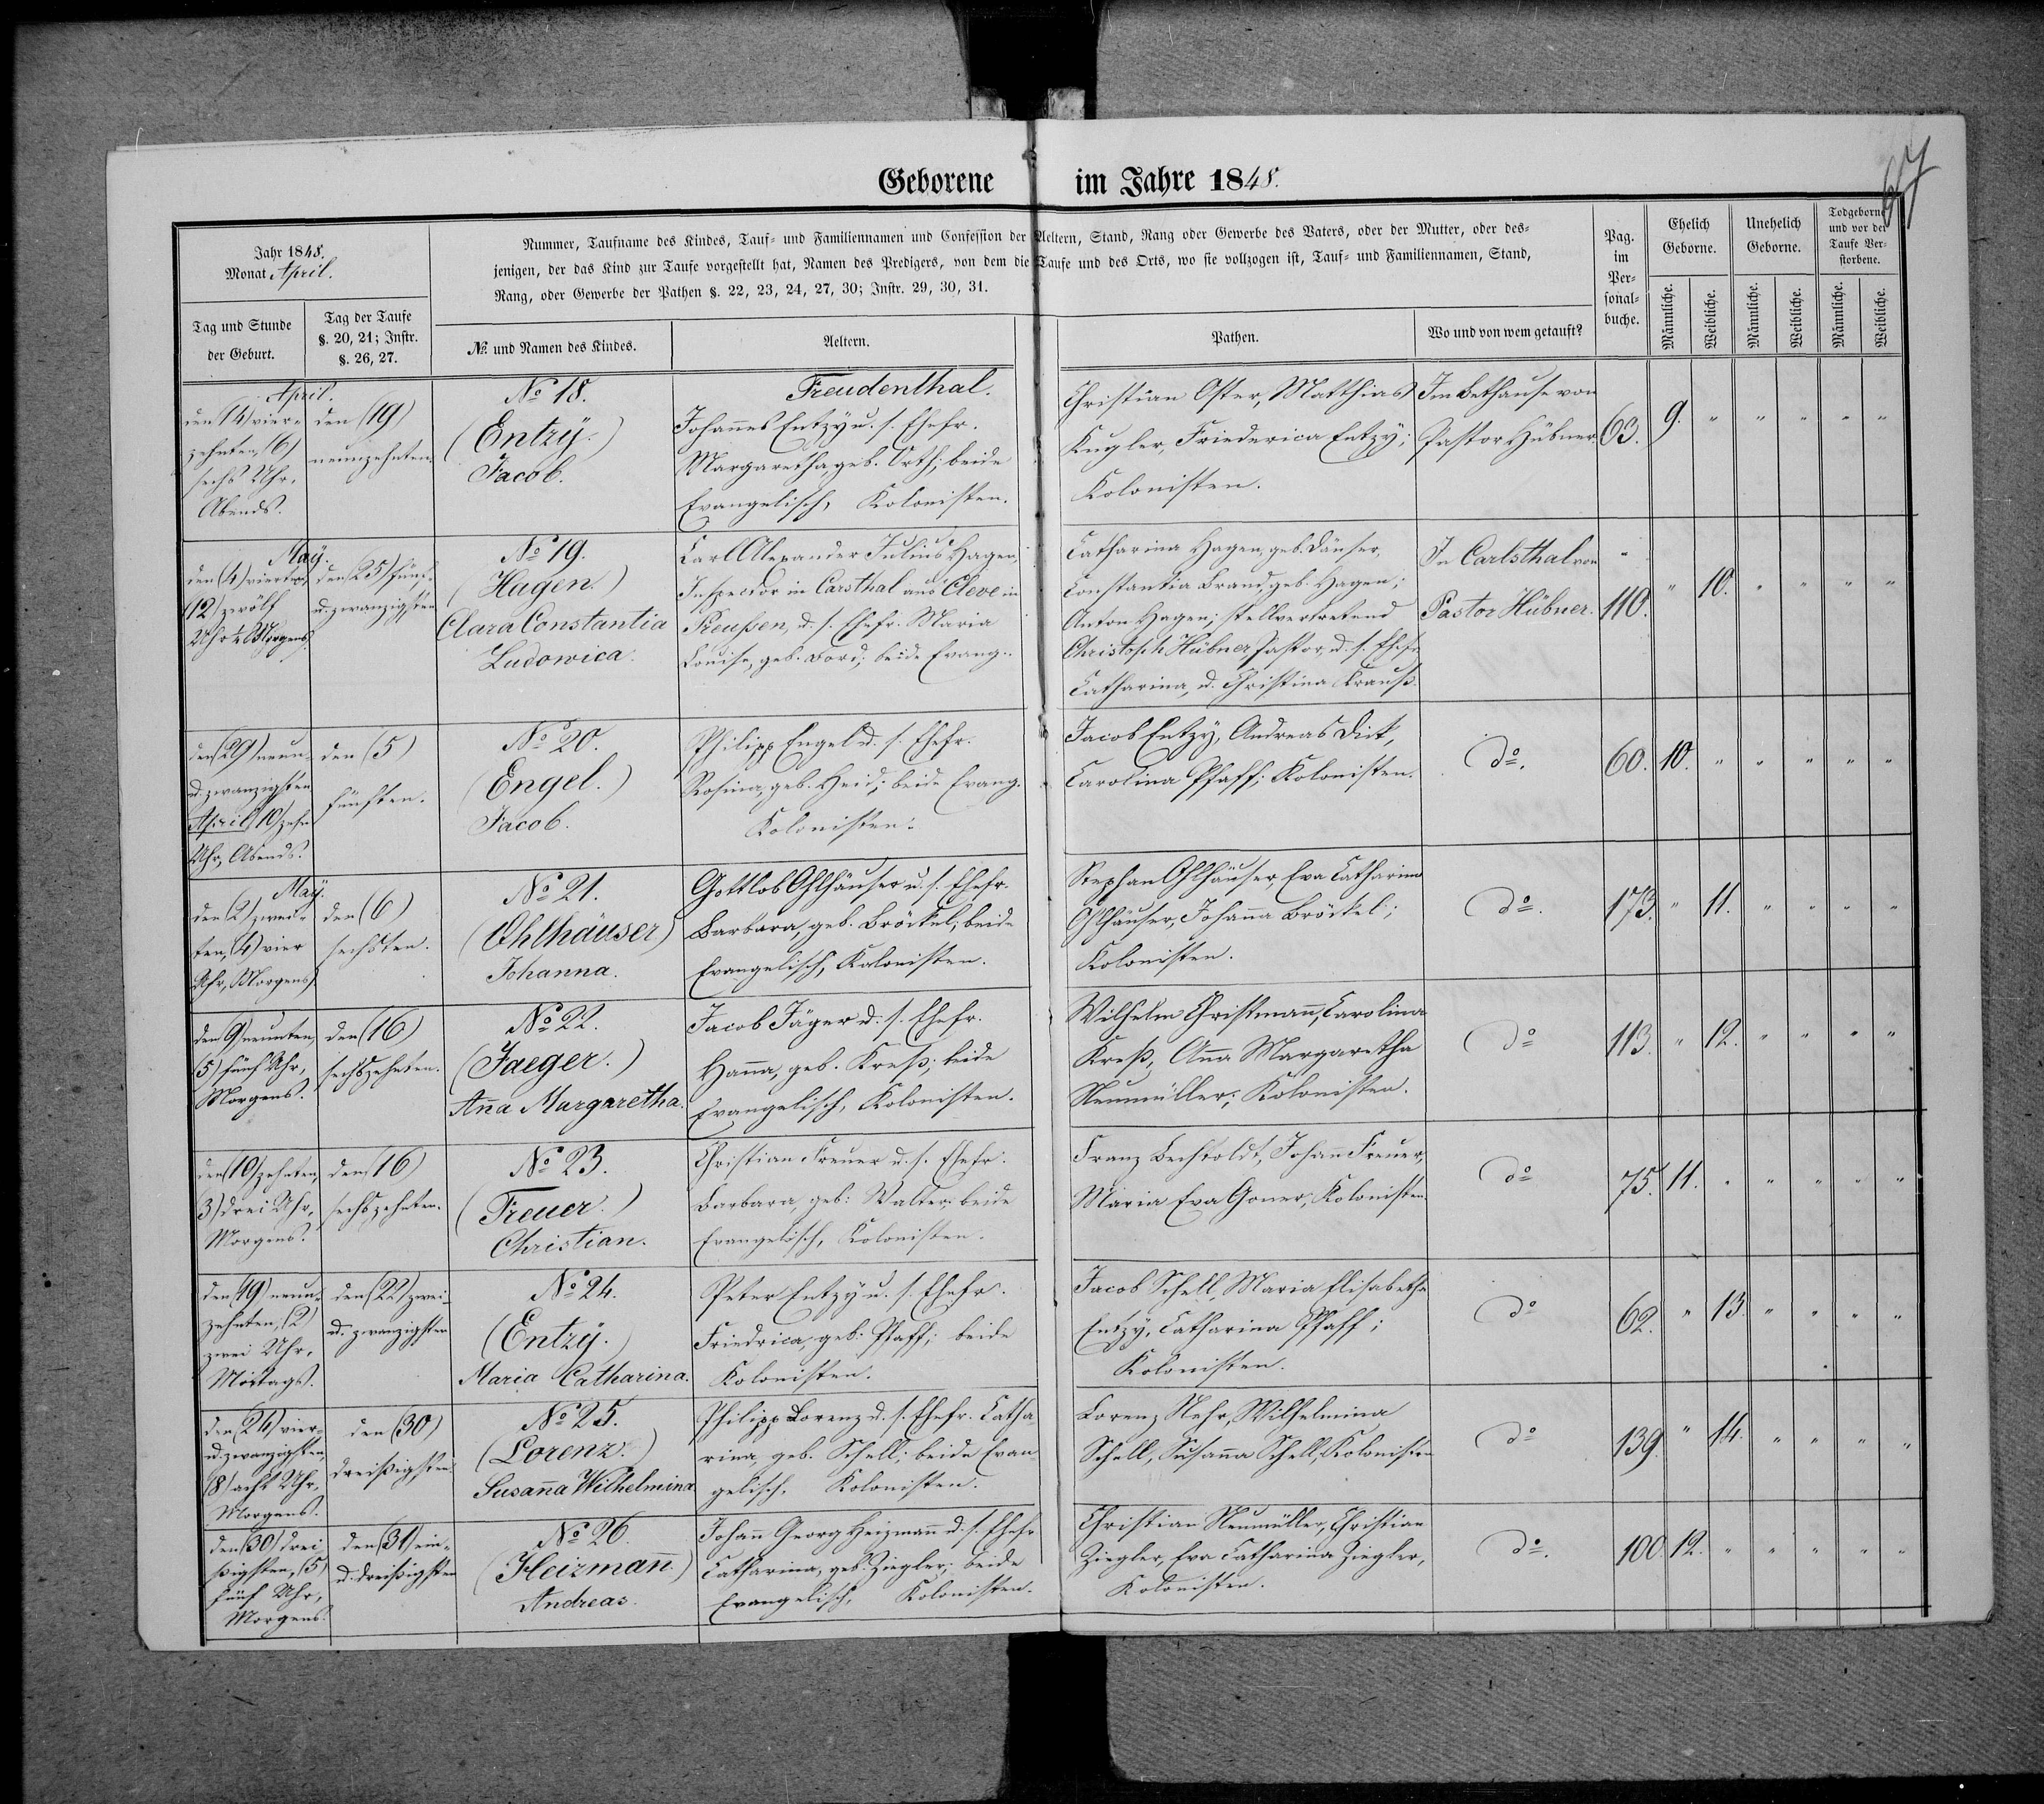 67
Geborene im Jahre 1848.
Jahr 1848.
Monat April.
Tag und Stunde
der Geburt.
Tag der Taufe
§. 20, 21; Instr.
§. 26, 27.
Nummer, Taufname des Kindes, Tauf- und Familiennamen und Confession der Aeltern, Stand, Rang oder Gewerbe des Vaters, oder der Mutter, oder des-
jenigen, der das Kind zur Taufe vorgestellt hat, Namen des Predigers, von dem die Taufe und des Orts, wo sie vollzogen ist, Tauf- und Familiennamen, Stand,
Rang, oder Gewerbe der Pathen §. 22, 23, 24, 27, 30; Instr. 29, 30, 31.
No. und Namen des Kindes.
Aeltern.
Pathen.
Wo und von wem getauft?
Pag.
im
Per-
sonal-
buche.
Ehelich
Geborne.
Unehelich
Geborne.
Todgeborne
und vor der
Taufe Ver-
storbene.
Männliche.
Weibliche.
Männliche.
Weibliche.
Männliche.
Weibliche.
April.
den (14) vier-
zehnten, (6)
sechs Uhr,
Abends.
den (19)
neunzehnten.
No 18.
(Entzÿ.)
Jacob.
Freudenthal.
Johannes Entzy u. s. Ehefr.
Margaretha, geb. Orth; beide
Evangelisch, Kolonisten.
Christian Oster, Matthias
Kugler, Friederica Entzy;
Kolonisten.
Im Bethause von
Pastor Hübner.
63. 9. " " " " "
Maÿ.
den (4) vierten,
(12) zwölf
Uhr Morgens.
den (25) fünf-
u. zwanzigsten
No 19.
(Hagen.)
Clara Constantia
Ludowica.
Carl Alexander Julius Hagen,
Inspector in Carsthal aus Cleve in
Preußen, u. s. Ehefr. Maria
Louise, geb. Bord; beide Evang.
Catharina Hagen, geb. Däuser,
Constantia Brand, geb. Hagen;
Anton Hagen; stellvertretend
Christoph Hübner, Pastor, u. s. Ehefr.
Catharina, u. Christina Krauß.
In Carlsthal von
Pastor Hübner.
110. " 10. " " " "
den (29) neun-
u. zwanzigsten
April, 10 zehn
Uhr, Abends.
den (5)
fünften.
No 20.
(Engel.)
Jacob.
Philipp Engel u. s. Ehefr.
Rosina, geb. Heid; beide Evang.
Kolonisten.
Jacob Entzy, Andreas Dick,
Carolina Pfaff; Kolonisten.
do.
60. 10. " " " " "
Maÿ.
den (2) zwei-
ten, (4) vier
Uhr, Morgens.
den (6)
sechsten.
No 21.
(Ohlhäuser)
Johanna.
Gottlob Ohlhäuser u. s. Ehefr.
Barbara, geb. Bröckel; beide
Evangelisch, Kolonisten.
Stephan Ohlhäuser, Eva Catharina
Ohlhäuser, Johanna Bröckel;
Kolonisten.
do.
173. " 11. " " " "
den 9 neunten,
(5) fünf Uhr,
Morgens.
den (16)
sechszehnten.
No 22.
(Jaeger.)
Ana Margaretha.
Jacob Jäger u. s. Ehefr.
Hanna, geb. Kreß; beide
Evangelisch, Kolonisten.
Wilhelm Christmann, Carolina
Kreß, Anna Margaretha
Neumüller; Kolonisten.
do
113. " 12. " " " "
den (10) zehnten,
3) drei Uhr,
Morgens.
den (16)
sechszehnten.
No 23.
(Freuer.)
Christian.
Christian Freuer u. s. Ehefr.
Barbara, geb. Walter; beide
Evangelisch, Kolonisten.
Franz Bechtoldt, Johann Freuer,
Maria Eva Goner, Kolonisten
do
75. 11. " " " " "
den (19) neun-
zehnten, (2)
zwei Uhr,
Mittags.
den (22) zwei-
u. zwanzigsten
No 24.
(Entzÿ.)
Maria Catharina.
Peter Entzy u. s. Ehefr.
Friedrica, geb. Pfaff; beide
Kolonisten.
Jacob Schell, Maria Elisabetha
Entzy, Catharina Pfaff;
Kolonisten.
do
62. " 13. " " " "
den (24) vier-
u. zwanzigsten,
(8) acht Uhr,
Morgens.
den (30)
dreißigsten.
No 25.
(Lorenz.)
Susana Wilhelmina
Philipp Lorenz u. s. Ehefr. Catha
rina, geb. Schell; beide Evan
gelisch, Kolonisten.
Lorenz Nehr, Wilhelmina
Schell, Susanna Schell, Kolonisten
do
139. " 14. " " " "
den (30) drei-
ßigsten, (5)
fünf Uhr,
Morgens.
den (31) ein-
u. dreißigsten
No 26.
(Heizmañ.)
Andreas.
Johann Georg Heizmann u. s. Ehefr.
Catharina, geb. Ziegler; beide
Evangelisch, Kolonisten.
Christian Neumüller, Christian
Ziegler, Eva Catharina Ziegler,
Kolonisten.
do.
100. 12. " " " " "